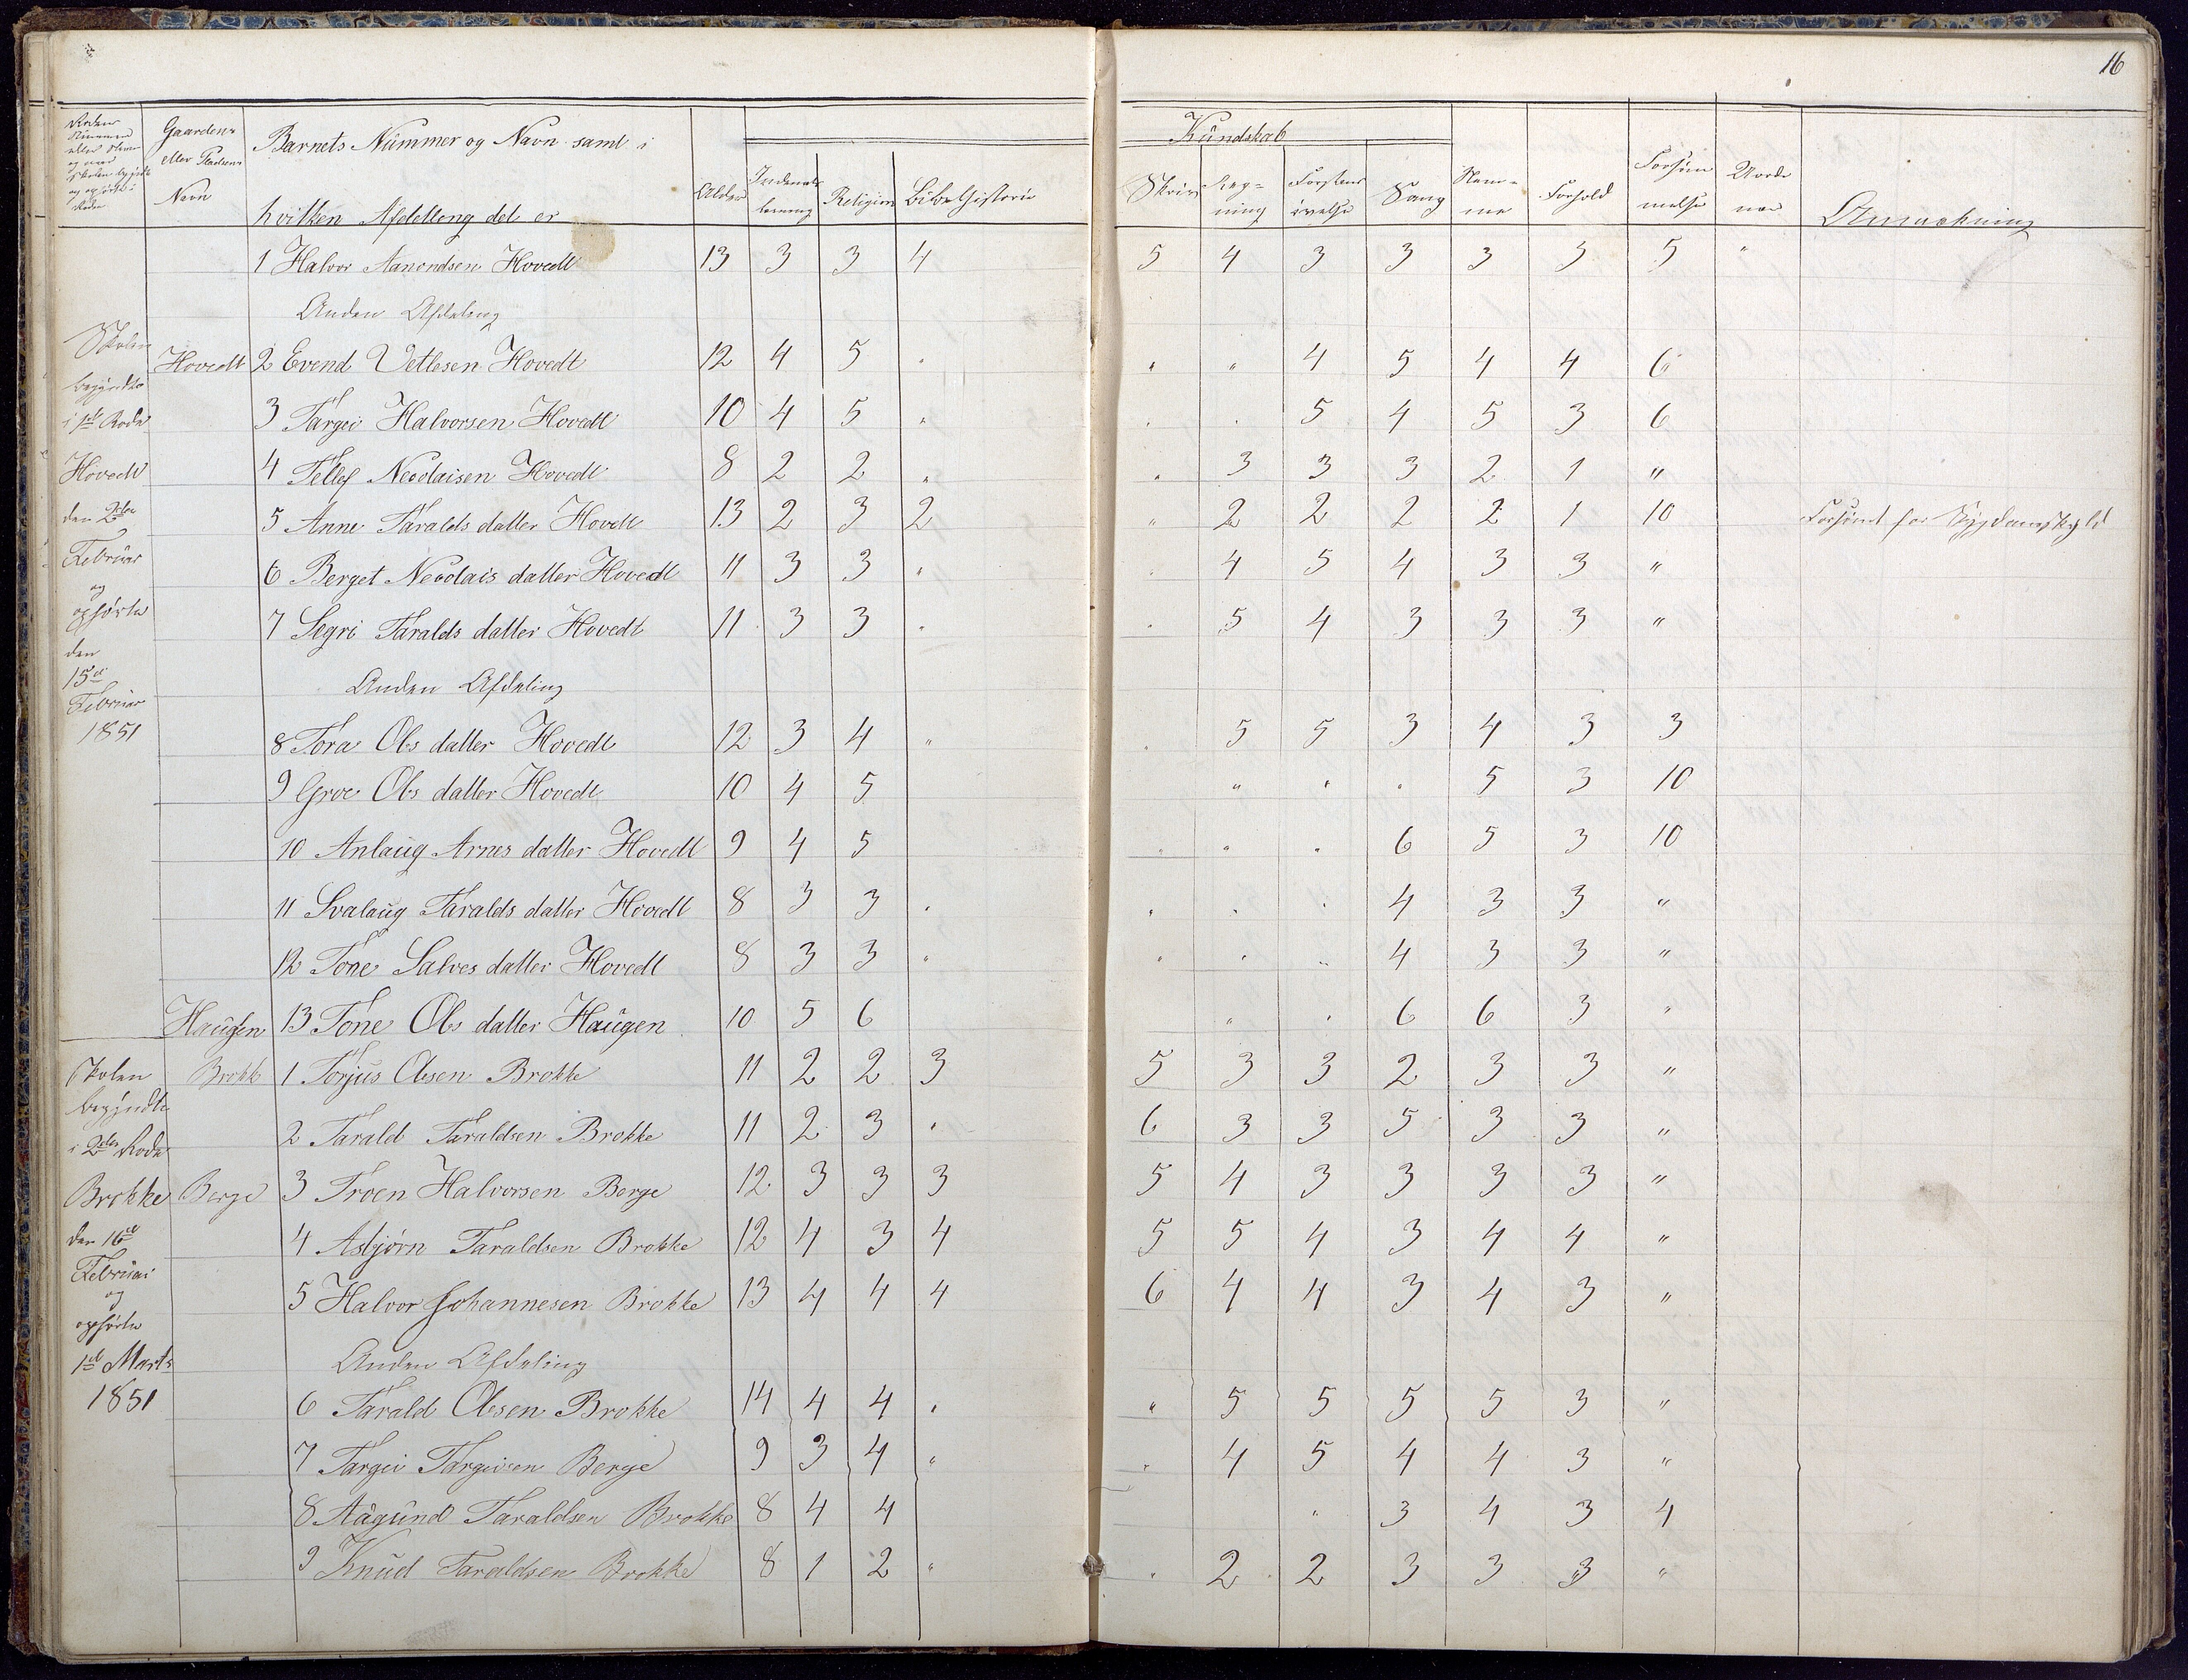 16
Rodens Nummer eller Navn og naar Skolen begyndte og ophørte i Roden | Gaardens eller Pladsens Navn | Barnets Nummer og Navn samt i hvilken Afdelleng det er | Alder | Indenadlæsning | Religion | Bibelhistorie | Kundskab | Skriv | Regning | Forstandsøvelse | Sang | Nemme | Forhold | Forsømmelse | Uordener | Anmærkning
1 Halvor Aanondsen Hovedt 13 3 3 4 5 4 3 3 3 3 5 "
Anden Afdeling
Skolen begyndte i 1ste Rode Hovedt den 2den Februar og ophørte den 15de Februar 1851
Hovedt 2 Evend Vetlesen Hovedt 12 4 5 " " " 4 5 4 4 6
3 Targei Halvorsen Hovedt 10 4 5 " " " 5 4 5 3 6
4 Tellef Neoolaisen Hovedt 8 2 2 " " 3 3 3 2 1 "
5 Anne Taralds datter Hovedt 13 2 3 2 " 2 2 2 2 1 10 Forsømt for Sygdomsskyld
6 Berget Neoolais datter Hovedt 11 3 3 " " 4 5 4 3 3 "
7 Segri Taralds datter Hovedt 11 3 3 " " 5 4 3 3 3 "
Anden Afdeling
8 Tora Ols datter Hovedt 12 3 4 " " 5 5 3 4 3 3
9 Groe Ols datter Hovedt 10 4 5 " " " 5 3 10
10 Anlaug Arnes datter Hovedt 9 4 5 " " " 6 5 3 10
11 Svalaug Taralds datter Hovedt 8 3 3 " " " " 4 3 3 "
12 Tone Salves datter Hovedt 8 3 3 " " " " 4 3 3 "
Haugen 13 Tone Ols datter Haugen 10 5 6 " " 6 6 3 "
Skolen begyndte i 2den Rode Brokke den 16de Februar og ophørte 1ste Marts 1851
Brokke 1 Torjus Olesen Brokke 11 2 2 3 5 3 3 2 3 3 "
2 Tarald Taraldsen Brokke 11 2 3 " 6 3 3 5 3 3 "
Berge 3 Troen Halvorsen Berge 12 3 3 3 5 4 3 3 3 3 "
4 Asbjørn Taraldsen Brokke 12 4 3 4 5 5 4 3 4 4 "
5 Halvor Johannesen Brokke 13 4 4 4 6 4 4 3 4 3 "
Anden Afdeling
6 Tarald Olesen Brokke 14 4 4 " " 5 5 5 5 3 "
7 Targei Targeisen Berge 9 3 4 " " 4 5 4 4 3 "
8 Aagund Taraldsen Brokke 8 4 4 " 3 4 3 4
9 Knud Taraldsen Brokke 8 1 2 " " 2 2 3 3 3 "